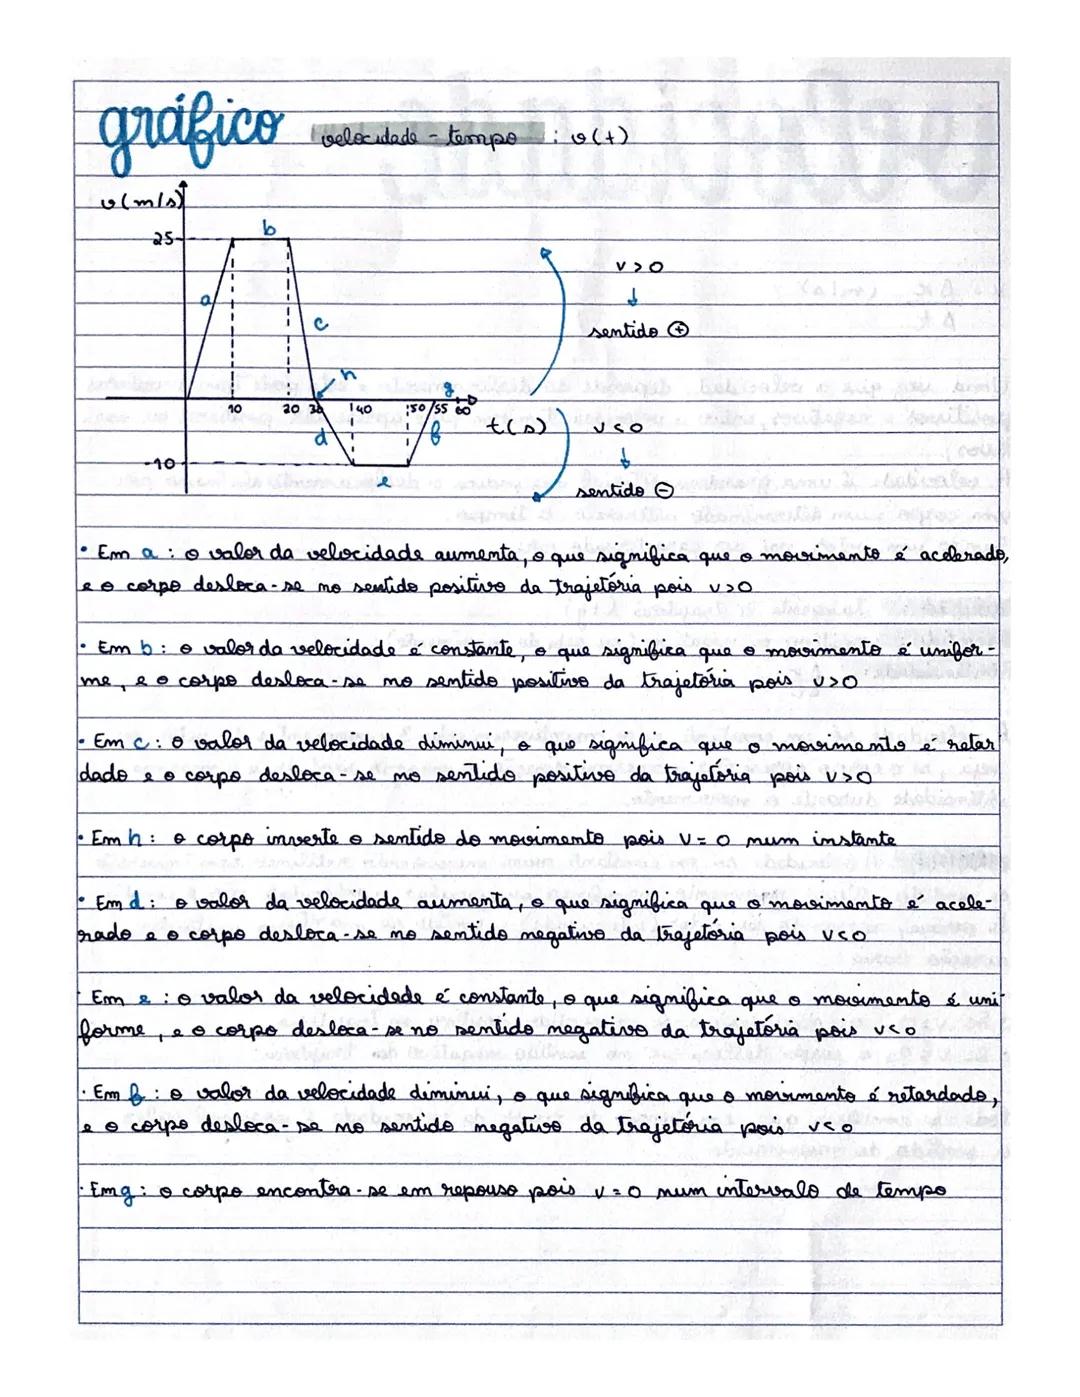 gráfico velocidade - tempo : v(t)
v(m/s)
25
b
a
c
v > 0
↓
sentido ⊕
h
g
10 20 30 40 50 55 60
t(s)
d
f
v < 0
↓
-10
e
sentido ⊖
• Em a : o valor da velocidade aumenta, o que significa que o movimento é acelerado,
e o corpo desloca-se no sentido positivo da trajetória pois v>0
• Em b : o valor da velocidade é constante, o que significa que o movimento é unifor-
me, e o corpo desloca-se no sentido positivo da trajetória pois v>0
• Em c : o valor da velocidade diminui, o que significa que o movimento é retar
dado e o corpo desloca-se no sentido positivo da trajetória pois v>0
• Em h : o corpo inverte o sentido do movimento pois v = 0 num instante
• Em d : o valor da velocidade aumenta, o que significa que o movimento é acele-
rado e o corpo desloca-se no sentido negativo da trajetória pois v<0
Em e : o valor da velocidade é constante, o que significa que o movimento é uni-
forme, e o corpo desloca-se no sentido negativo da trajetória pois v<0
• Em f : o valor da velocidade diminui, o que significa que o movimento é retardado,
e o corpo desloca-se no sentido negativo da trajetória pois v<0
• Em g : o corpo encontra-se em repouso pois v = 0 num intervalo de tempo